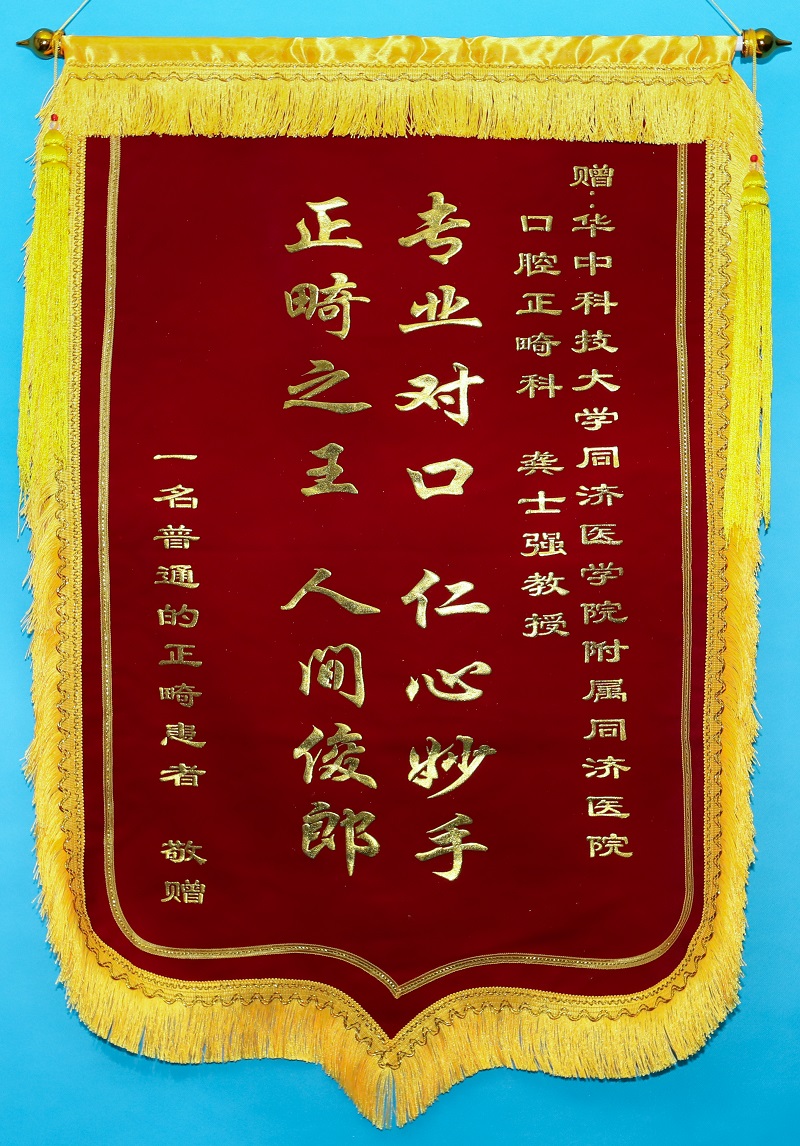 赠:华中科技大学同济医学院附属同济医院
口腔正畸科 龚士强教授
专业对口 仁心妙手
正畸之王 人间俊郎
一名普通的正畸患者 敬赠